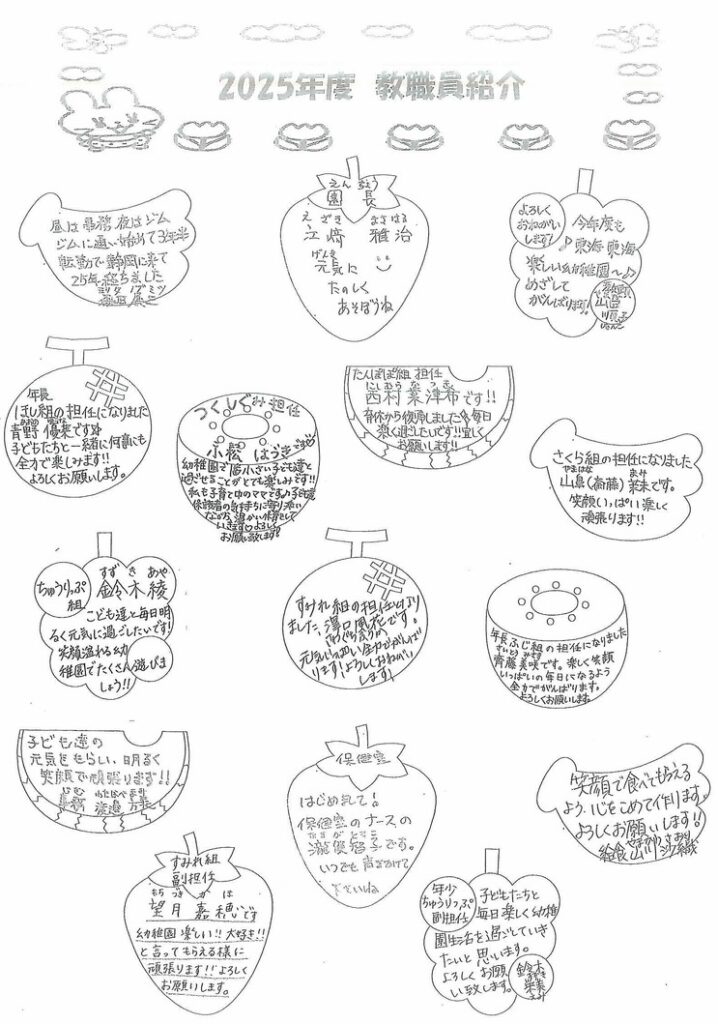 2025年度 教職員紹介
昼は事務、夜はジム
ジムに通い始めて3年半
転勤で静岡に来て
25年経ちました
えん ちょう
園 長
え ざき まさはる
江﨑 雅治
げんき
元気に
たのしく
あそぼうね
よろしく
おねがい
します!
今年度も
♪東海東海
楽しい幼稚園〜♪
めざして
がんばります。
年長
ほし組の担任になりました
青野 優来です
子どもたちと一緒に何事にも
全力で楽しみます!!
よろしくお願いします。
つくしぐみ担任
小松 はづきです
幼稚園で1番小さい子ども達と
過ごせることがとても楽しみです!!
私も子育て中のママです♪子ども達、
保護者の気持ちに寄り添い
ながら、温かい保育をして
いきます♡よろしく
お願い致します。
たんぽぽ組 担任
にしむら なつき
西村 菜津希です!!
育休から復帰しました 毎日
楽しく過ごしたいです!!宜しく
お願いします!!
さくら組の担任になりました
やまはな まみ
山鼻(斎藤)茉未です。
笑顔いっぱい楽しく
頑張ります!!
ちゅうりっぷ
組
すず き あや
鈴木 綾
こども達と毎日明
るく元気に過ごしたいです!
笑顔溢れる幼
稚園でたくさん遊びま
しょう!!
すみれ組の担任になり
ました、澤口風花です。
元気いっぱい全力でがんば
ります!よろしくおねがい
します!
年長ふじ組の担任になりました
さいとう みさき
齊藤美咲です。楽しく笑顔
いっぱいの毎日になるよう
全力でがんばります。
よろしくお願いします。
子ども達の
元気をもらい、明るく
笑顔で頑張ります!!
じむ わたなべ
事務 渡邉
保健室
はじめまして!
保健室のナースの
瀧賀智子です。
いつでも 声をかけて
くださいね
笑顔で食べてもらえる
よう、心をこめて作ります。
よろしくお願いします!!
やまかわ さおり
給食 山川 沙織
すみれ組
副担任
もち づき か ほ
望月 嘉穂です
幼稚園楽しい!! 大好き!!
と言ってもらえる様に
頑張ります!!よろしく
お願いします。
年少
ちゅうりっぷ
副担任
子どもたちと
毎日楽しく幼稚
園生活を過ごしていき
たいと思います。
よろしくお願
い致します。
鈴木